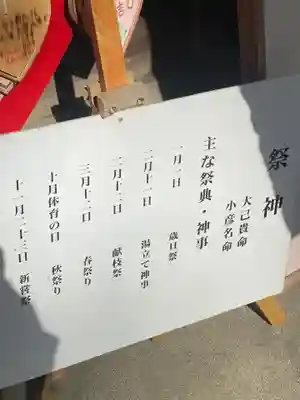 祭神
大己貴命
小彦名命
主な祭典・神事
一月一日 歳旦祭
二月十一日 湯立て神事
二月十三日 献枝祭
三月十三日 春祭り
十月体育の日 秋祭り
十一月二十三日 新嘗祭